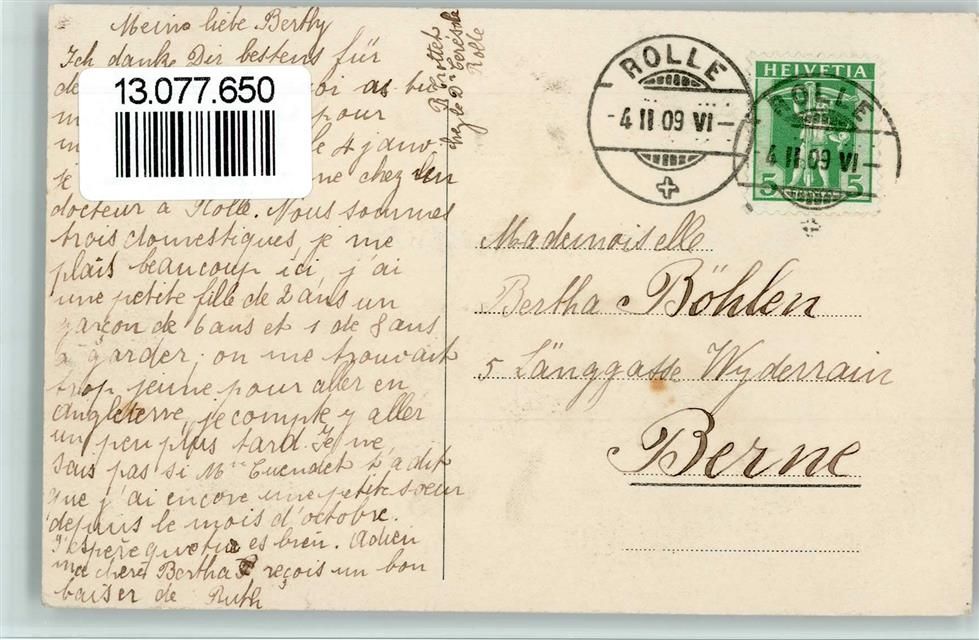 Meine liebe Berthy
Ich danke Dir bestens für
de
13.077.650
pour
le 4 janv.
chez un
docteur à Rolle. Nous sommes
trois domestiques, je me
plais beaucoup ici, j'ai
une petite fille de 2 ans un
garçon de 6 ans et 1 de 8 ans
à garder. on me trouvait
trop jeune pour aller en
Angleterre, je compte y aller
un peu plus tard. Je ne
sais pas si Mme Cuendet t'a dit
que j'ai encore une petite soeur
depuis le mois d'octobre.
J'espère que tu es bien. Adieu
ma chère Bertha reçois un bon
baiser de Ruth
chez le Dr
Rolle
ROLLE
4 II 09 VI
HELVETIA
5 5
ROLLE
4 II 09 VI
Mademoiselle
Bertha Böhlen
5 Länggasse Wyderrain
Berne